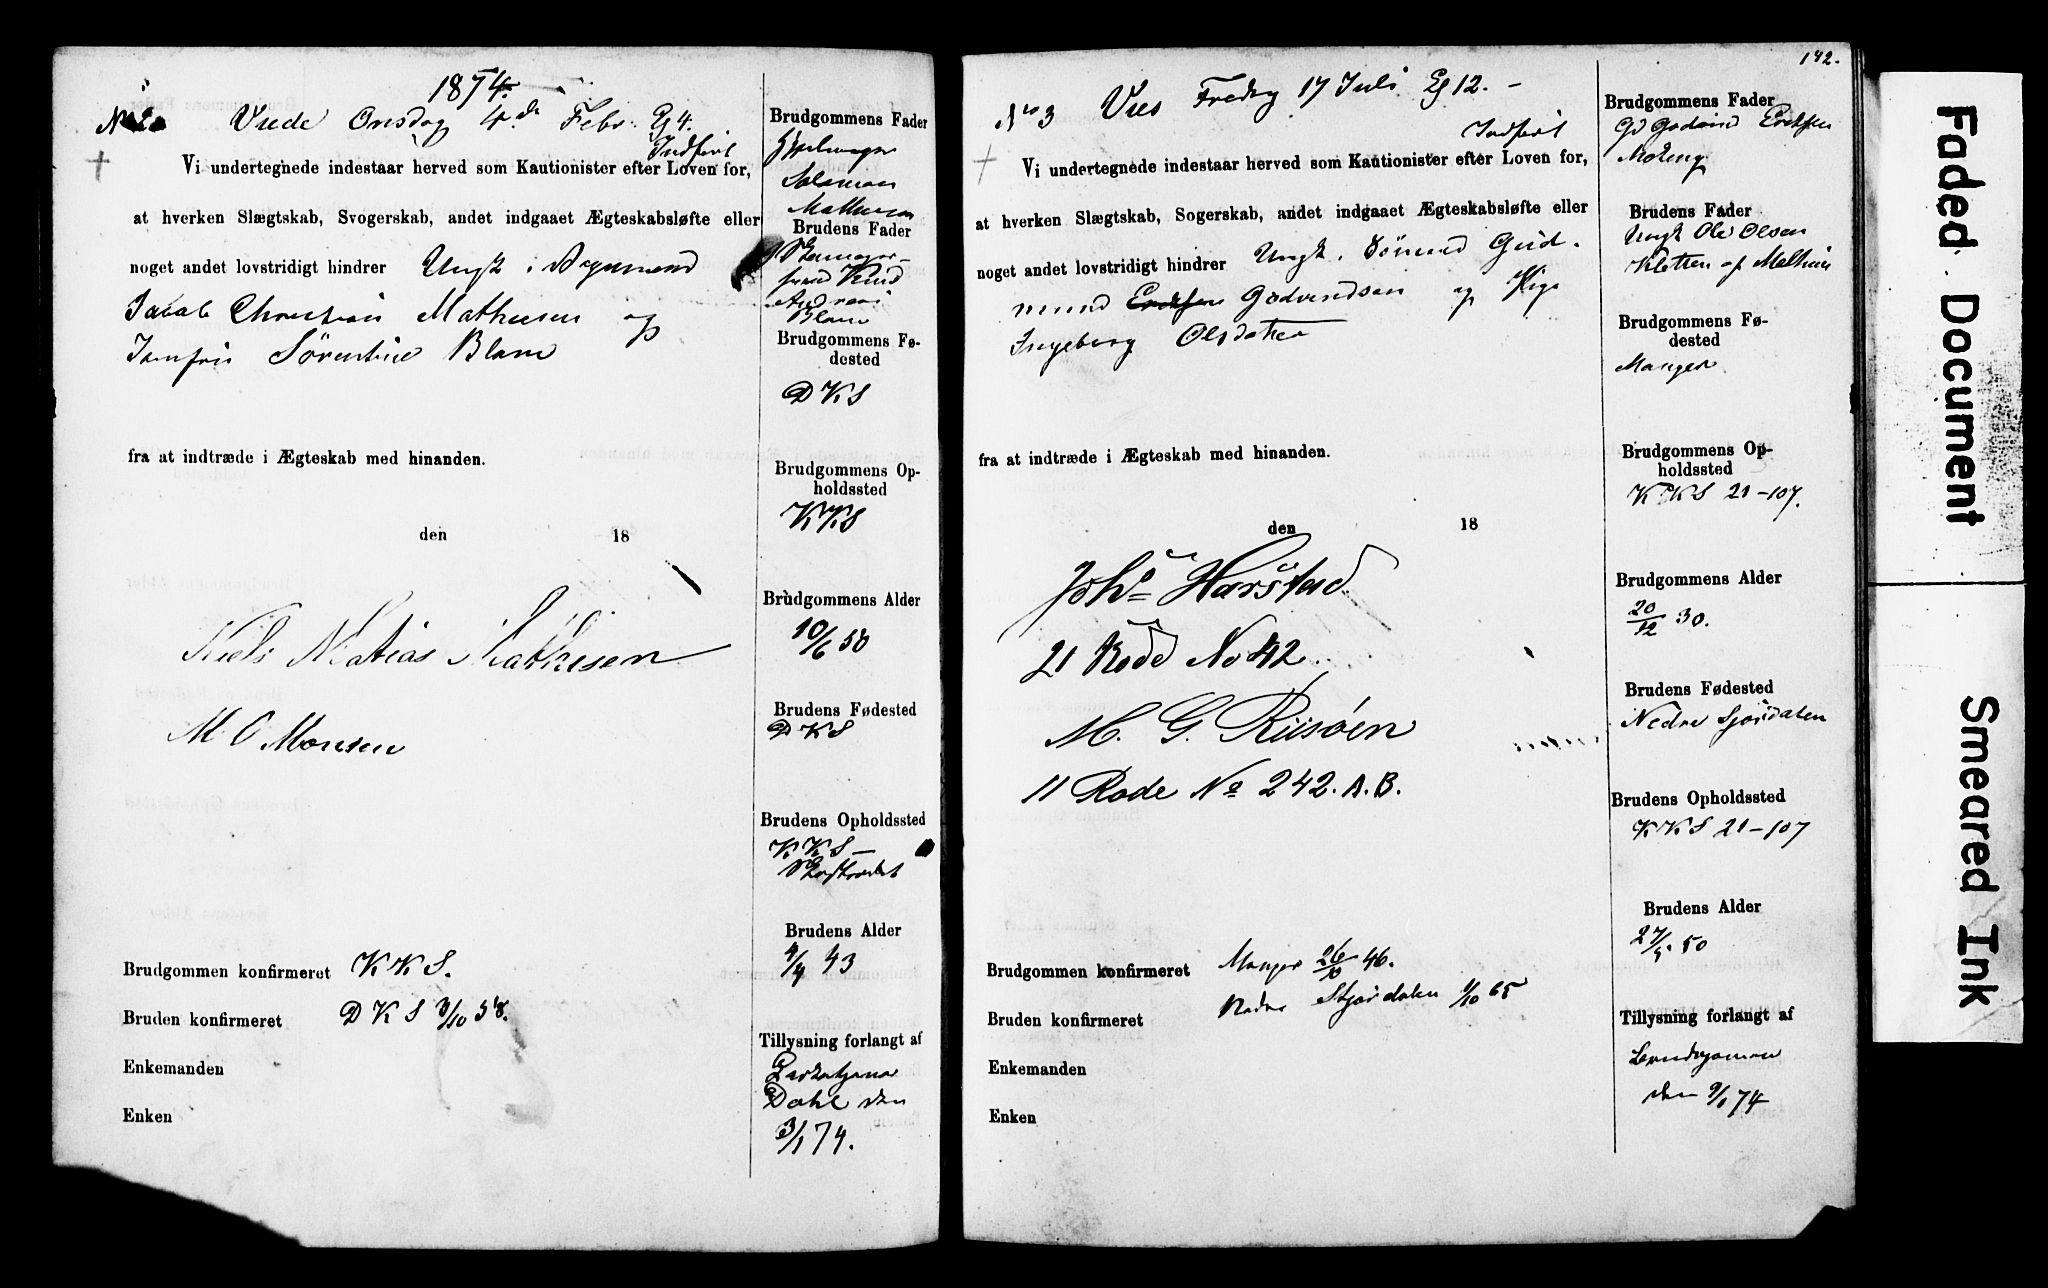 1874.
No 2 Viede Onsdag 4de Febr. Eg 4.
Indført
Vi undertegnede indestaar herved som Kautionister efter Loven for,
at hverken Slægtskab, Svogerskab, andet indgaaet Ægteskabsløfte eller
noget andet lovstridigt hindrer Ungk.
Jacob Christian Mathiesen og
Jomfru Sørentine Blom
fra at indtræde i Ægteskab med hinanden.
den 18
Niels Matias Mathisen
M. O Monsen
Brudgommen konfirmeret KKS.
Bruden konfirmeret DKS 3/10 58.
Enkemanden
Enken
Brudgommens Fader
Salomon
Mathiesen
Brudens Fader
Knud
Andreas
Blom
Brudgommens Fø-
dested
DKS
Brudgommens Op-
holdssted
KKS
Brudgommens Alder
10/6 50
Brudens Fødested
DKS
Brudens Opholdssted
KKS –
Brudens Alder
4/4 43
Tillysning forlangt af
Dahl den
3/1 74.
142.
No 3 Vies Fredag 17 Juli Eg 12. –
Indført
Vi undertegnede indestaar herved som Kautionister efter Loven for,
at hverken Slægtskab, Sogerskab, andet indgaaet Ægteskabsløfte eller
noget andet lovstridigt hindrer Ungk. Gud-
mund Eriksen Godvindsen og Pige
Ingeborg Olsdatter
fra at indtræde i Ægteskab med hinanden.
den 18
Johs Harstad
21 Rode No 42
M. G. Riisöen
11 Rode No 242. A. B.
Brudgommen konfirmeret Manger 26/10 46.
Bruden konfirmeret Nedre Stjørdalen 1/10 65
Enkemanden
Enken
Brudgommens Fader
Gd Godvind Eriksen
Brudens Fader
Ungk Ole Olsen
Kletten af Melhus
Brudgommens Fø-
dested
Manger
Brudgommens Op-
holdssted
KKS 21–107.
Brudgommens Alder
20/12 30.
Brudens Fødested
Nedre Stjørdalen
Brudens Opholdssted
KKS 21–107
Brudens Alder
27/5 50
Tillysning forlangt af
Brudgommen
den 9/1 74
Faded Document
Smeared Ink